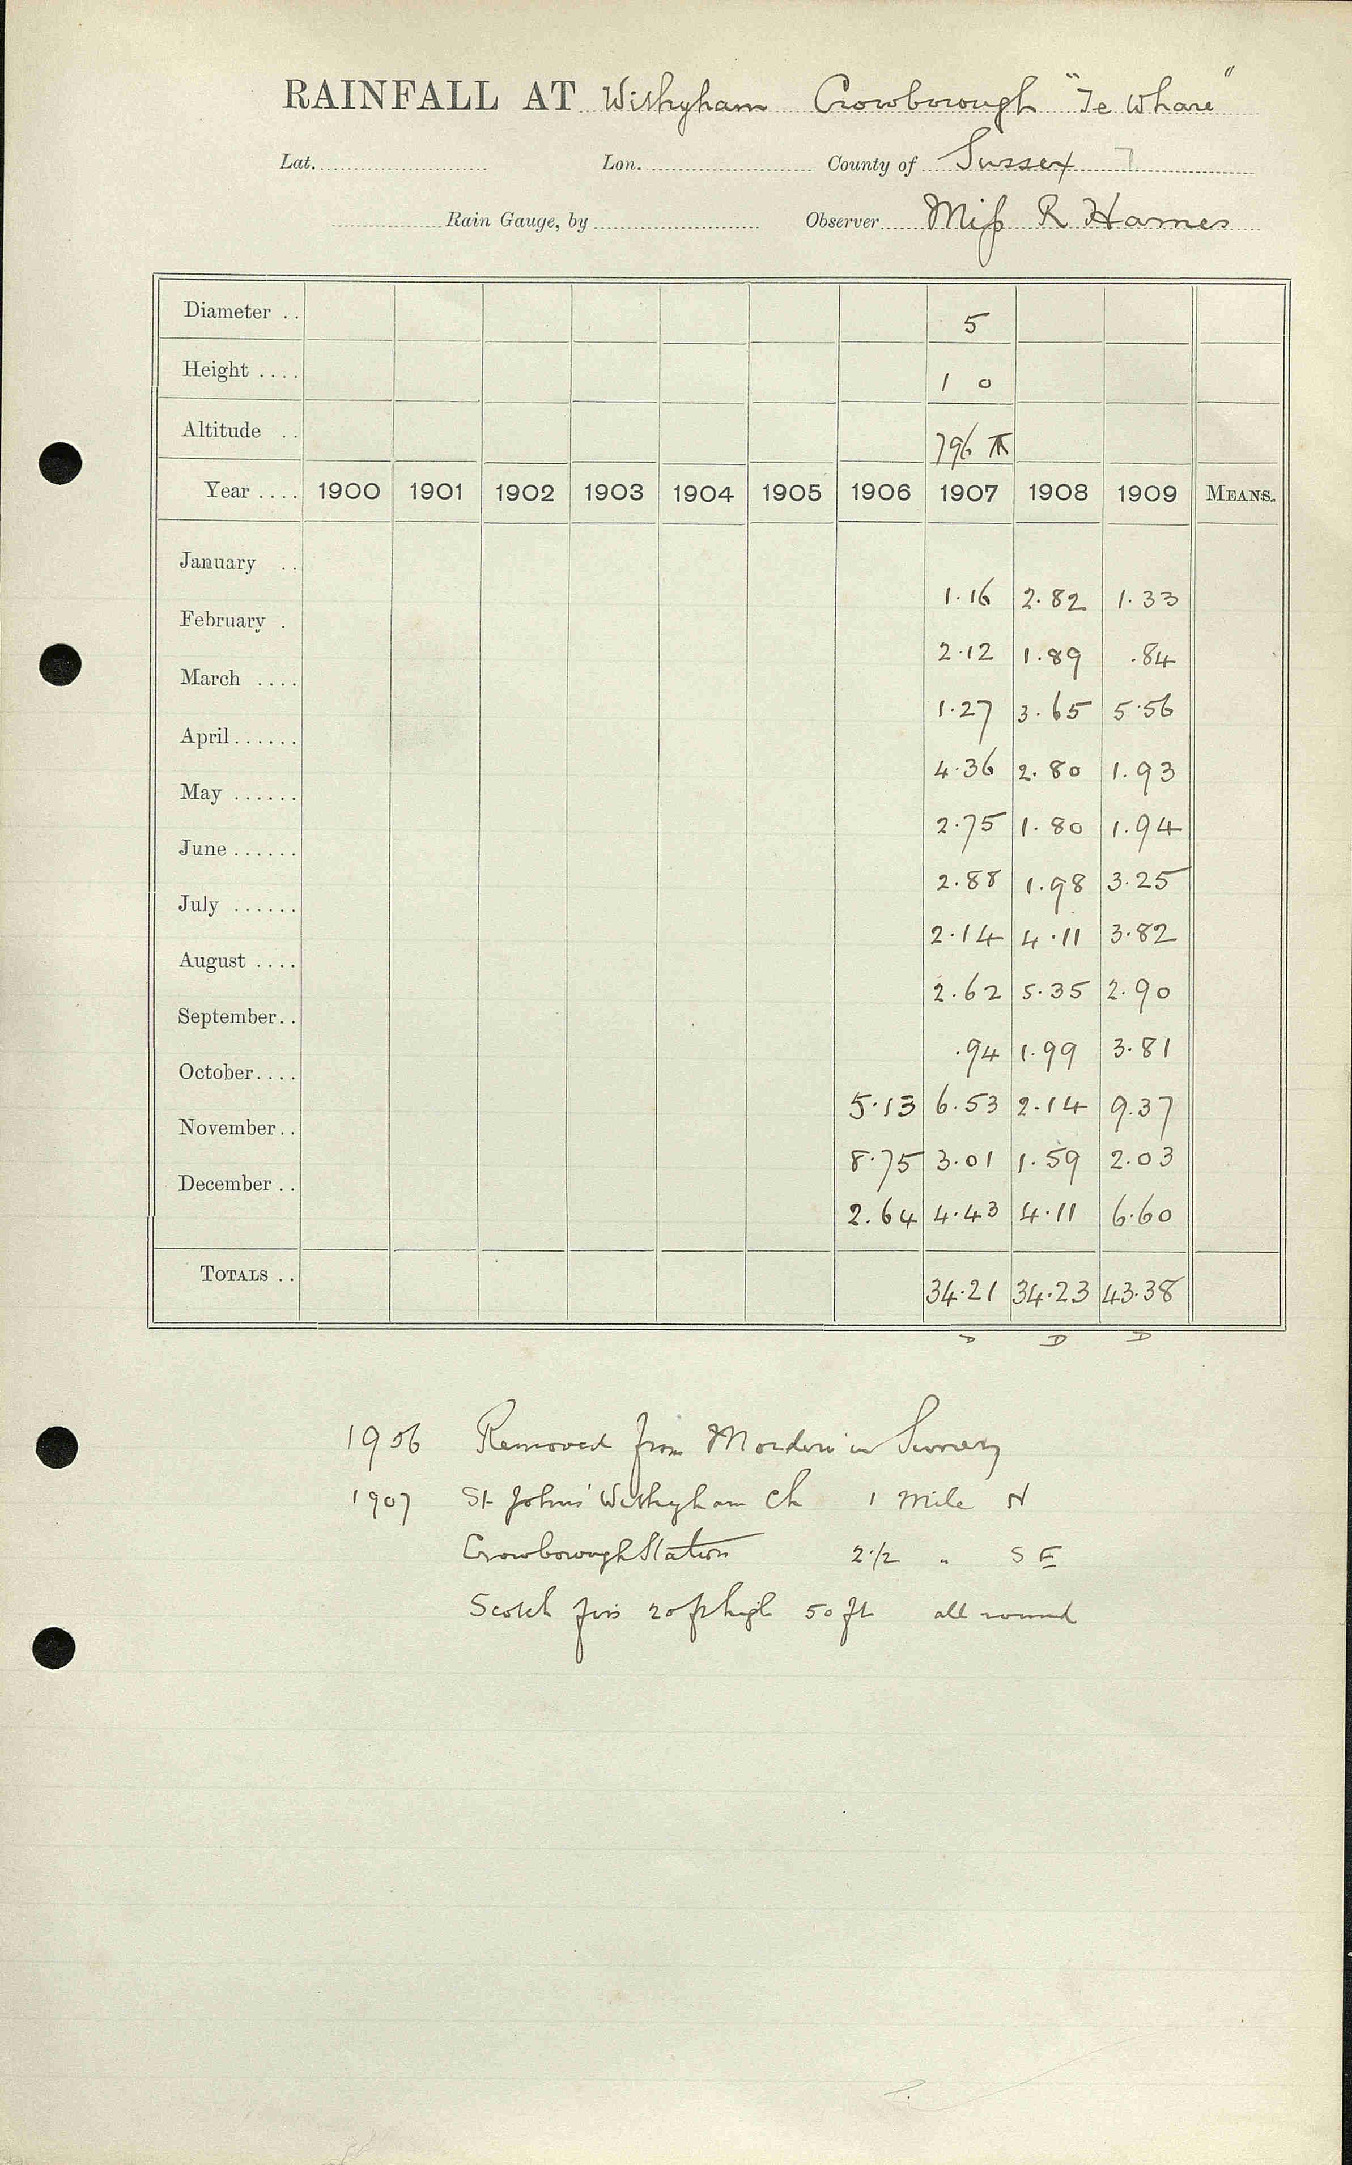 RAINFALL AT Withyham Crowborough "Te Whare"
Lat. Lon. County of Sussex 7
Rain Gauge, by Observer Miss R Hames
Diameter .. 5
Height .... 1 0
Altitude .. 796
Year .... 1900 1901 1902 1903 1904 1905 1906 1907 1908 1909 MEANS.
January .. 1.16 2.82 1.33
February . 2.12 1.89 .84
March .... 1.27 3.65 5.56
April...... 4.36 2.80 1.93
May ...... 2.75 1.80 1.94
June ...... 2.88 1.98 3.25
July ...... 2.14 4.11 3.82
August .... 2.62 5.35 2.90
September.. .94 1.99 3.81
October.... 5.13 6.53 2.14 9.37
November.. 8.75 3.01 1.59 2.03
December .. 2.64 4.43 4.11 6.60
TOTALS .. 34.21 34.23 43.38
D D D
1906 Removed from Morden in Surrey
1907 St Johns' Withyham Ch 1 Mile N
Crowborough Station 2 1/2 " S E
Scotch firs 20 ft high 50 ft all round